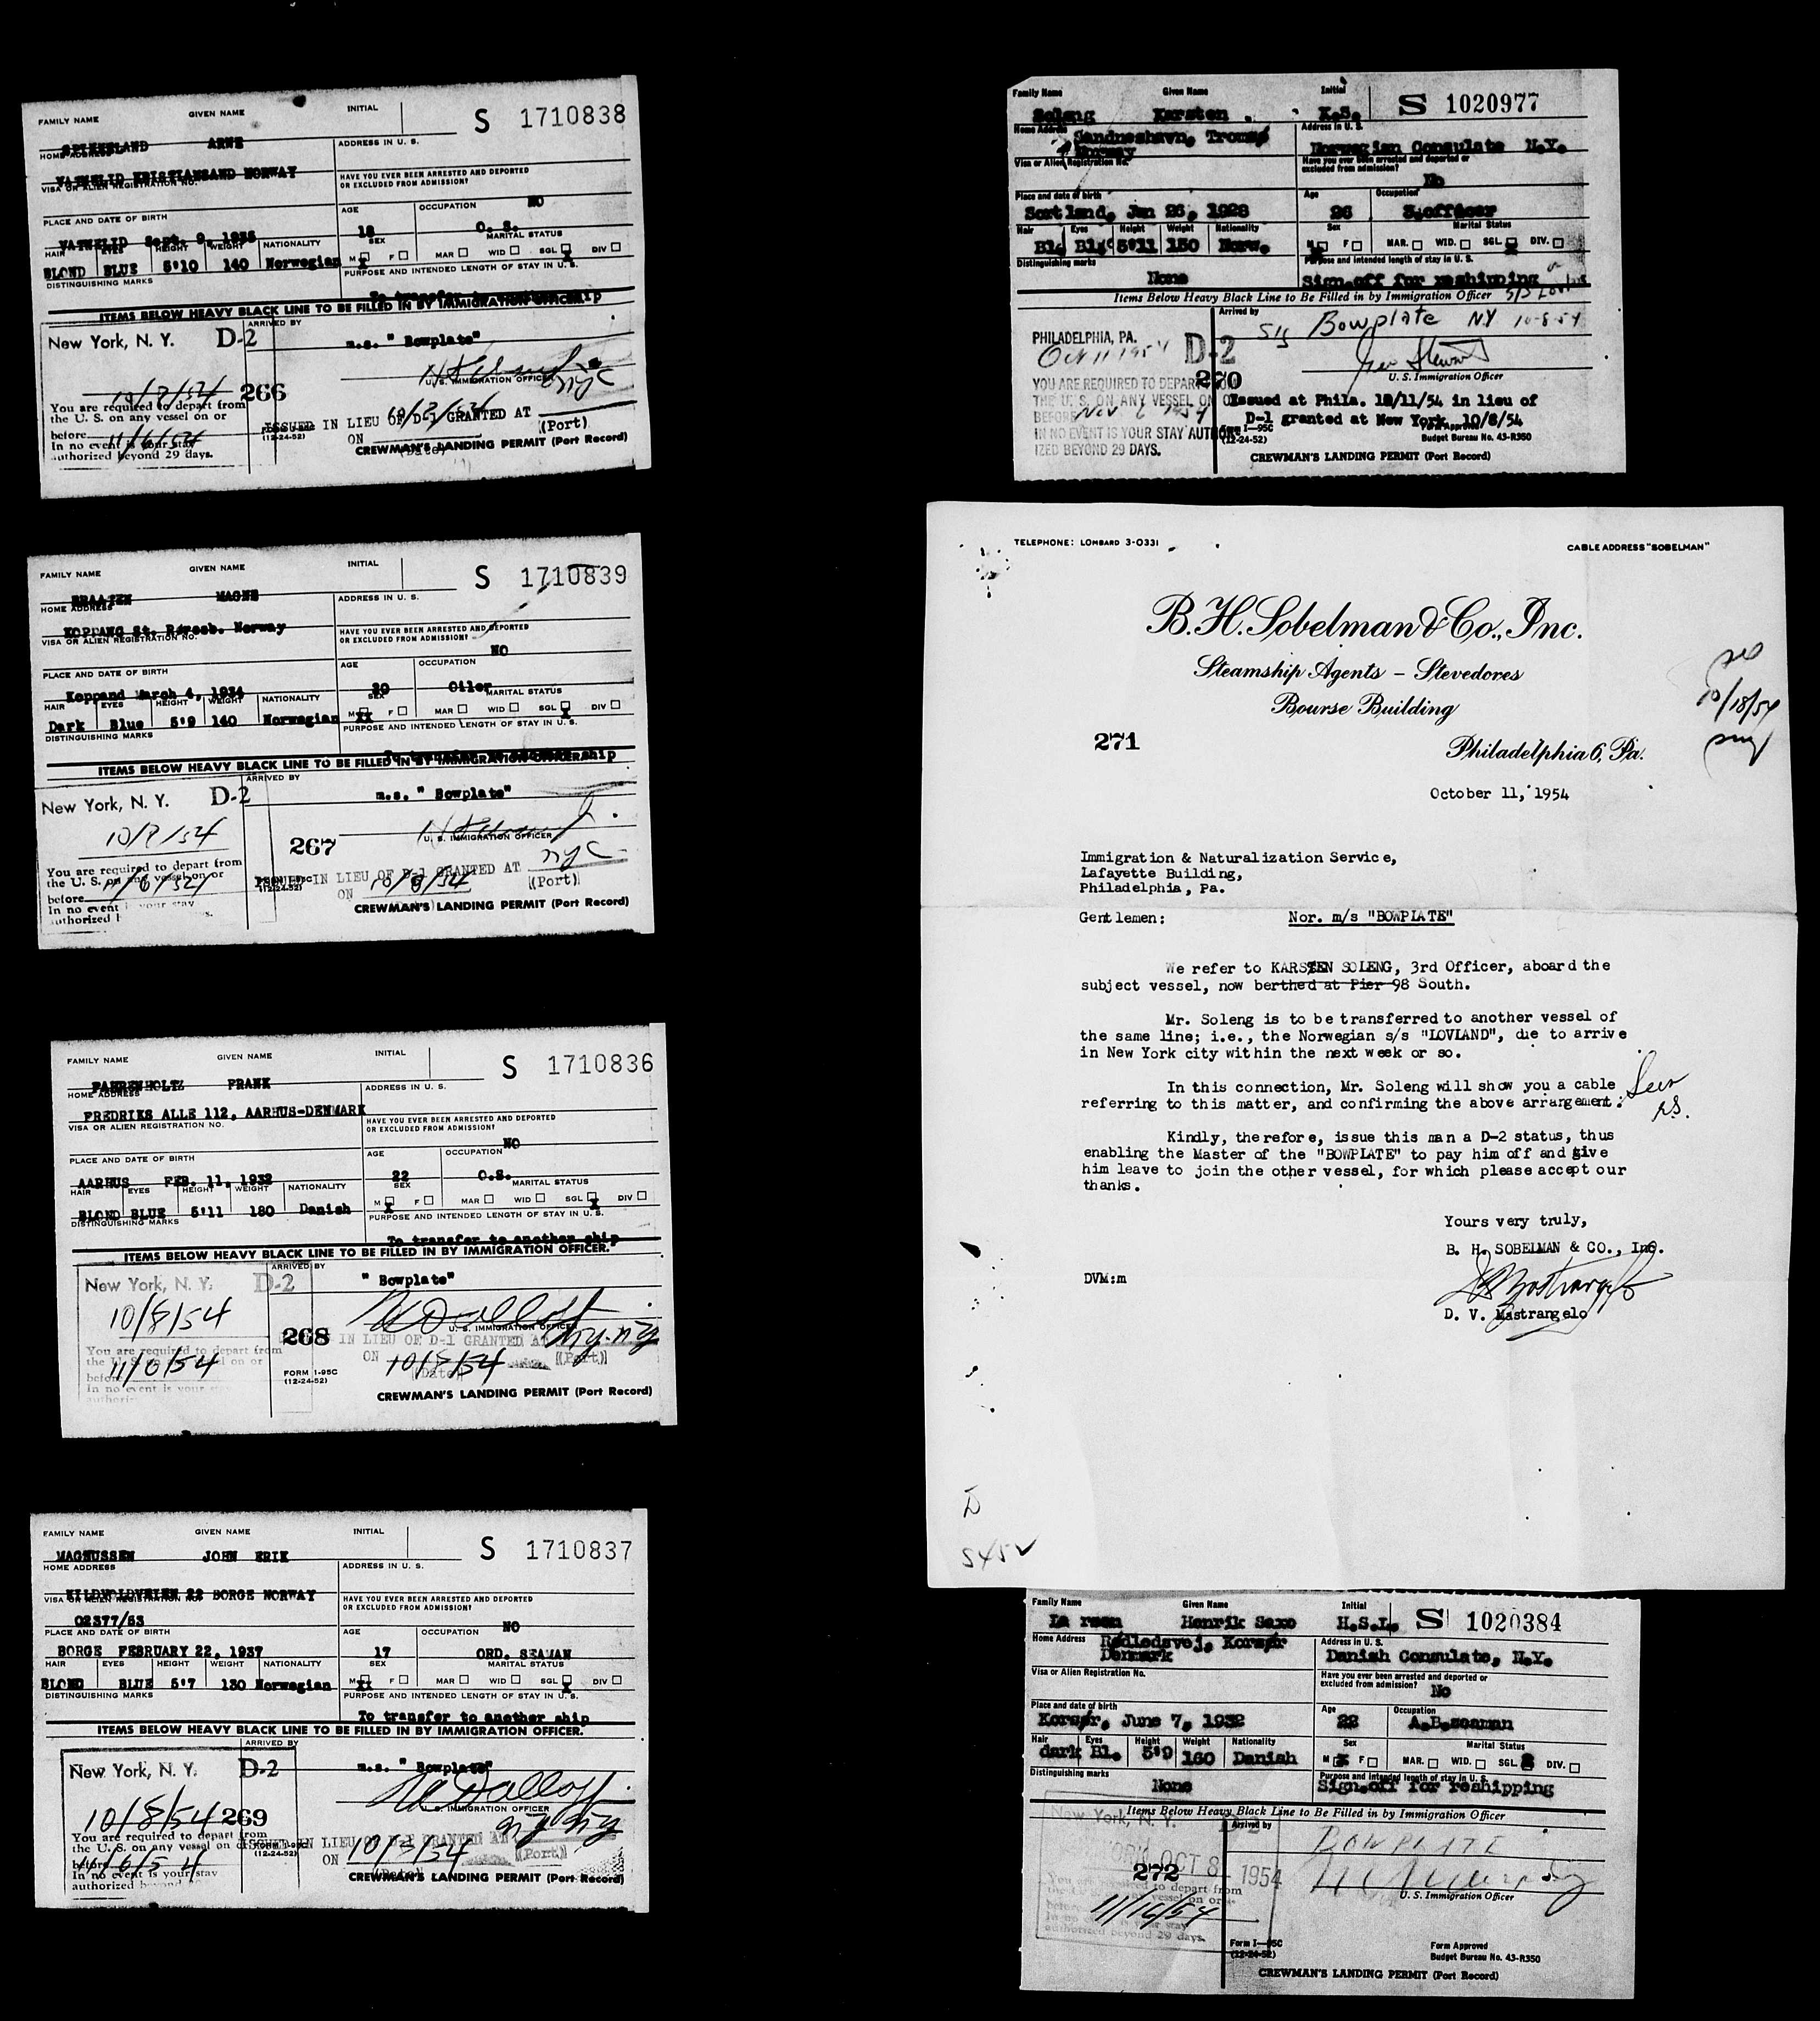 FAMILY NAME GIVEN NAME INITIAL
S 1710838
ARNE
HOME ADDRESS ADDRESS IN U. S.
VATNELID KRISTIANSAND NORWAY
VISA OR ALIEN REGISTRATION NO. HAVE YOU EVER BEEN ARRESTED AND DEPORTED
OR EXCLUDED FROM ADMISSION?
NO
PLACE AND DATE OF BIRTH AGE OCCUPATION
VATNELID Sept. 9, 1935 18 O. S.
HAIR EYES HEIGHT WEIGHT NATIONALITY SEX MARITAL STATUS
BLOND BLUE 5'10 140 Norwegian M X F MAR WID SGL X DIV
DISTINGUISHING MARKS PURPOSE AND INTENDED LENGTH OF STAY IN U. S.
To transfer to another ship
ITEMS BELOW HEAVY BLACK LINE TO BE FILLED IN BY IMMIGRATION OFFICER.
New York, N. Y. D-2 ARRIVED BY
m.s. " Bowplate"
U. S. IMMIGRATION OFFICER
266
You are required to depart from
the U. S. on any vessel on or
before 11/6/54
In no event is your stay
authorized beyond 29 days.
ISSUED IN LIEU OF D-1 GRANTED AT NYC
ON (Date) (Port)
(12-24-52)
CREWMAN'S LANDING PERMIT (Port Record)
FAMILY NAME GIVEN NAME INITIAL
S 1710839
BRAATEN MAGNE
HOME ADDRESS ADDRESS IN U. S.
KOPPANG St. Norway
VISA OR ALIEN REGISTRATION NO. HAVE YOU EVER BEEN ARRESTED AND DEPORTED
OR EXCLUDED FROM ADMISSION?
NO
PLACE AND DATE OF BIRTH AGE OCCUPATION
Koppand March 4, 1934 20 Oiler
HAIR EYES HEIGHT WEIGHT NATIONALITY SEX MARITAL STATUS
Dark Blue 5'9 140 Norwegian M XX F MAR WID SGL X DIV
DISTINGUISHING MARKS PURPOSE AND INTENDED LENGTH OF STAY IN U. S.
To transfer to another ship
ITEMS BELOW HEAVY BLACK LINE TO BE FILLED IN BY IMMIGRATION OFFICER.
New York, N. Y. D-2 ARRIVED BY
m.s. " Bowplate"
U. S. IMMIGRATION OFFICER
267
You are required to depart from
the U. S. on any vessel on or
before 11/6/54
In no event is your stay
authorized
ISSUED IN LIEU OF D-1 GRANTED AT NYC
ON 10/8/54 (Port)
(12-24-52)
CREWMAN'S LANDING PERMIT (Port Record)
FAMILY NAME GIVEN NAME INITIAL
S 1710836
FAHRENHOLTZ FRANK
HOME ADDRESS ADDRESS IN U. S.
FREDRIKS ALLE 112, AARHUS-DENMARK
VISA OR ALIEN REGISTRATION NO. HAVE YOU EVER BEEN ARRESTED AND DEPORTED
OR EXCLUDED FROM ADMISSION?
NO
PLACE AND DATE OF BIRTH AGE OCCUPATION
AARHUS FEB. 11, 1932 22 O.S.
HAIR EYES HEIGHT WEIGHT NATIONALITY SEX MARITAL STATUS
BLOND BLUE 5'11 180 Danish M X F MAR WID SGL X DIV
DISTINGUISHING MARKS PURPOSE AND INTENDED LENGTH OF STAY IN U. S.
To transfer to another ship
ITEMS BELOW HEAVY BLACK LINE TO BE FILLED IN BY IMMIGRATION OFFICER.
New York, N. Y. D-2 ARRIVED BY
" Bowplate"
10/8/54
U. S. IMMIGRATION OFFICER
268
You are required to depart from
the U. S. on any vessel on or
before 11/6/54
In no event is your stay
IN LIEU OF D-1 GRANTED AT
ON 10/8/54 (Date) (Port)
FORM I-95C
(12-24-52)
CREWMAN'S LANDING PERMIT (Port Record)
FAMILY NAME GIVEN NAME INITIAL
S 1710837
MAGNUSSEN JOHN ERIK
HOME ADDRESS ADDRESS IN U. S.
22 BORGE NORWAY
VISA OR ALIEN REGISTRATION NO. HAVE YOU EVER BEEN ARRESTED AND DEPORTED
OR EXCLUDED FROM ADMISSION?
02377/53 NO
PLACE AND DATE OF BIRTH AGE OCCUPATION
BORGE FEBRUARY 22, 1937 17 ORD. SEAMAN
HAIR EYES HEIGHT WEIGHT NATIONALITY SEX MARITAL STATUS
BLOND BLUE 5'7 130 Norwegian M XX F MAR WID SGL X DIV
DISTINGUISHING MARKS PURPOSE AND INTENDED LENGTH OF STAY IN U. S.
To transfer to another ship
ITEMS BELOW HEAVY BLACK LINE TO BE FILLED IN BY IMMIGRATION OFFICER.
New York, N. Y. D-2 ARRIVED BY
m.s. " Bowplate"
10/8/54 269
U. S. IMMIGRATION OFFICER
You are required to depart from
the U. S. on any vessel on or
before 11/6/54
In no event is your stay
authorized beyond
ISSUED IN LIEU OF D-1 GRANTED AT
ON (Date) (Port)
(12-24-52)
CREWMAN'S LANDING PERMIT (Port Record)
Family Name Given Name Initial
S 1020977
Soleng Karsten K.S.
Home Address Address in U. S.
Sandneshavn, Tromsø
Norway
Norwegian Consulate N.Y.
Visa or Alien Registration No. Have you ever been arrested and deported or
excluded from admission?
No
Place and date of birth Age Occupation
Sortland, Jan 26, 1928 26 3.officer
Hair Eyes Height Weight Nationality Sex Marital Status
Blg 5'11 150 Norw. M F MAR. WID. SGL. DIV.
Distinguishing marks Purpose and intended length of stay in U. S.
None Sign.off for reshipping
Items Below Heavy Black Line to Be Filled in by Immigration Officer
Arrived by Bowplate NY 10-8-54
PHILADELPHIA, PA. D-2
Oct 11 1954
U. S. Immigration Officer
270
YOU ARE REQUIRED TO DEPART FROM
THE U. S. ON ANY VESSEL ON OR
BEFORE Nov 6 1954
IN NO EVENT IS YOUR STAY AUTHOR-
IZED BEYOND 29 DAYS.
Issued at Phila. 10/11/54 in lieu of
D-1 granted at New York, 10/8/54
Form I-95C
(12-24-52)
Budget Bureau No. 43-R350
CREWMAN'S LANDING PERMIT (Port Record)
TELEPHONE: LOMBARD 3-0331
CABLE ADDRESS "SOBELMAN"
B. H. Sobelman & Co., Inc.
Steamship Agents – Stevedores
Bourse Building
271
Philadelphia 6, Pa.
10/18/54
October 11, 1954
Immigration & Naturalization Service,
Lafayette Building,
Philadelphia, Pa.
Gentlemen: Nor. m/s "BOWPLATE"
We refer to KARSTEN SOLENG, 3rd Officer, aboard the
subject vessel, now berthed at Pier 98 South.
Mr. Soleng is to be transferred to another vessel of
the same line; i.e., the Norwegian s/s "LOVLAND", due to arrive
in New York city within the next week or so.
In this connection, Mr. Soleng will show you a cable
referring to this matter, and confirming the above arrangement.
Kindly, therefore, issue this man a D-2 status, thus
enabling the Master of the "BOWPLATE" to pay him off and give
him leave to join the other vessel, for which please accept our
thanks.
Yours very truly,
B. H. SOBELMAN & CO., Inc.
DVM:m
D. V. Mastrangelo
Family Name Given Name Initial
S 1020384
Henrik Saxo H.S.L.
Home Address Address in U. S.
Rødledsvej, Korsør
Denmark
Danish Consulate, N.Y.
Visa or Alien Registration No. Have you ever been arrested and deported or
excluded from admission? No
Place and date of birth Age Occupation
Korsør, June 7, 1932 22 A.B.seaman
Hair Eyes Height Weight Nationality Sex Marital Status
dark Bl. 5'9 160 Danish M F MAR. WID. SGL. DIV.
Distinguishing marks Purpose and intended length of stay in U. S.
None Sign.off for reshipping
Items Below Heavy Black Line to Be Filled in by Immigration Officer
New York, N. Y. D-2 Arrived by
BOWPLATE
OCT 8 1954
272
U. S. Immigration Officer
11/16/54
authorized beyond 29 days.
Form I-95C
(12-24-52)
Form Approved
Budget Bureau No. 43-R350
CREWMAN'S LANDING PERMIT (Port Record)